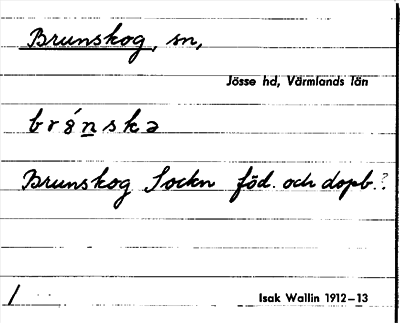 Brunskog, sn,
Jösse hd, Värmlands län
brǿn̲skə
Brunskog Sockn föd. och dopb.?
/
Isak Wallin 1912–13